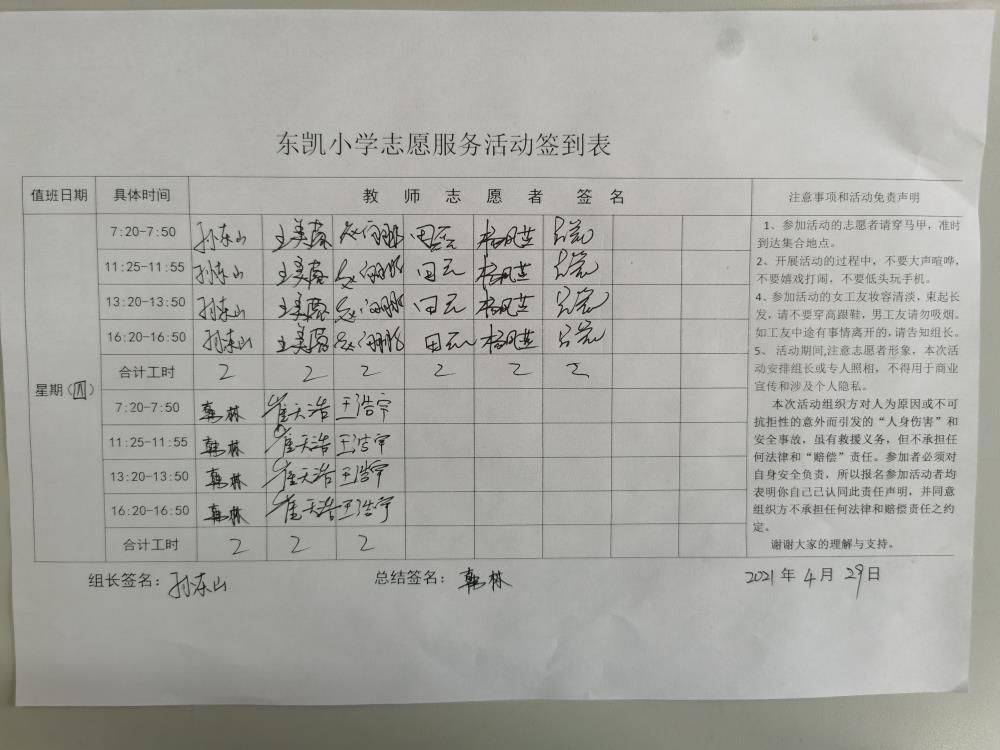 东凯小学志愿服务活动签到表
值班日期 具体时间 教师志愿者签名 注意事项和活动免责声明
星期(四)
7:20-7:50 孙东山 王美蓉 田云
11:25-11:55 孙东山 王美蓉 田云
13:20-13:50 孙东山 王美蓉 田云
16:20-16:50 孙东山 王美蓉 田云
合计工时 2 2 2 2 2 2
7:20-7:50 韩林 崔天浩 王浩宇
11:25-11:55 韩林 崔天浩 王浩宇
13:20-13:50 韩林 崔天浩 王浩宇
16:20-16:50 韩林 崔天浩 王浩宇
合计工时 2 2 2
1、参加活动的志愿者请穿马甲，准时
到达集合地点。
2、开展活动的过程中，不要大声喧哗，
不要嬉戏打闹，不要低头玩手机。
4、参加活动的女工友妆容清淡，束起长
发，请不要穿高跟鞋，男工友请勿吸烟。
如工友中途有事情离开的，请告知组长。
5、 活动期间,注意志愿者形象，本次活
动安排组长或专人照相，不得用于商业
宣传和涉及个人隐私。
本次活动组织方对人为原因或不可
抗拒性的意外而引发的“人身伤害”和
安全事故，虽有救援义务，但不承担任
何法律和“赔偿”责任。参加者必须对
自身安全负责，所以报名参加活动者均
表明你自己已认同此责任声明，并同意
组织方不承担任何法律和赔偿责任之约
定。
谢谢大家的理解与支持。
组长签名：孙东山 总结签名：韩林 2021年4月29日